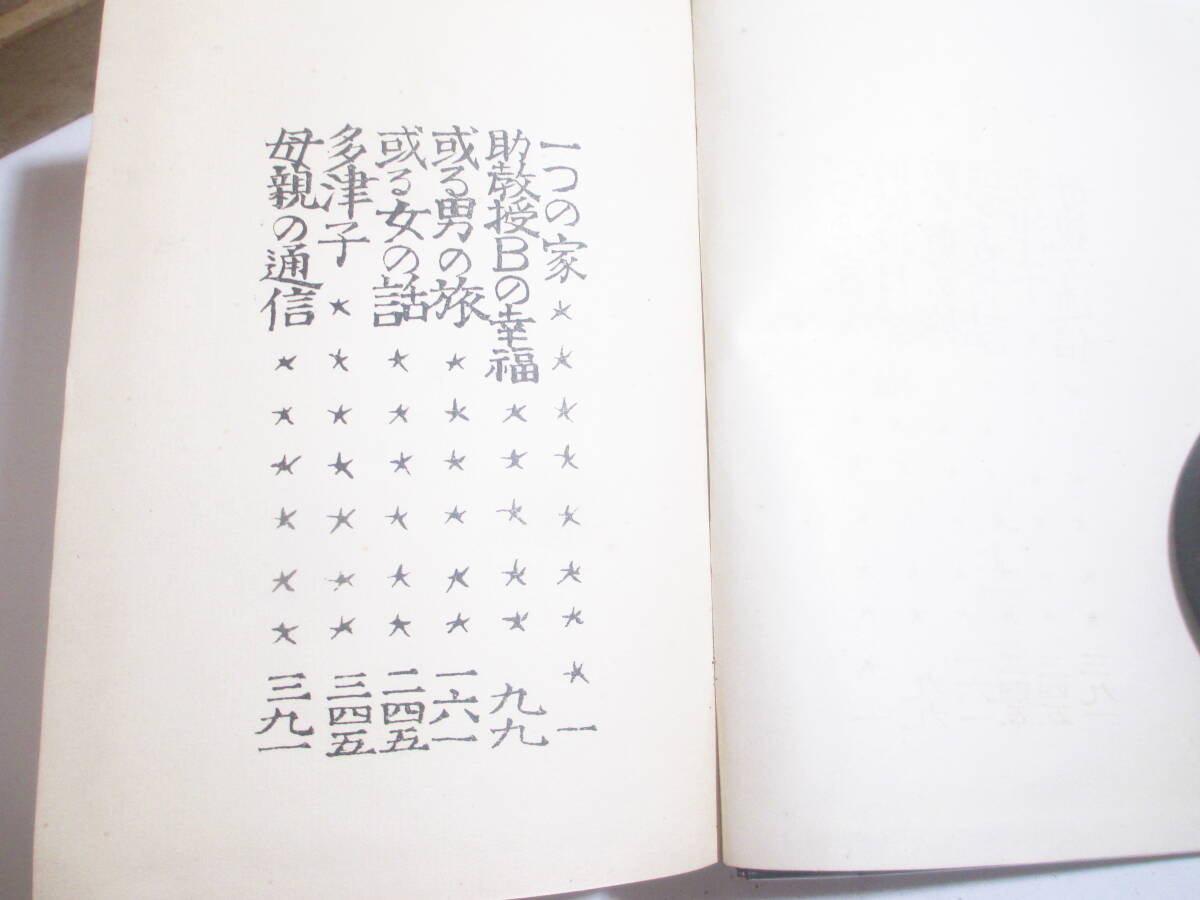 一つの家 ★ ★ ★ ★ ★ ★ ★ ★ 一
助教授Bの幸福 ★ ★ ★ ★ ★ 九九
或る男の旅 ★ ★ ★ ★ ★ ★ 一六一
或る女の話 ★ ★ ★ ★ ★ ★ 二四五
多津子 ★ ★ ★ ★ ★ ★ ★ 三四五
母親の通信 ★ ★ ★ ★ ★ ★ 三九一